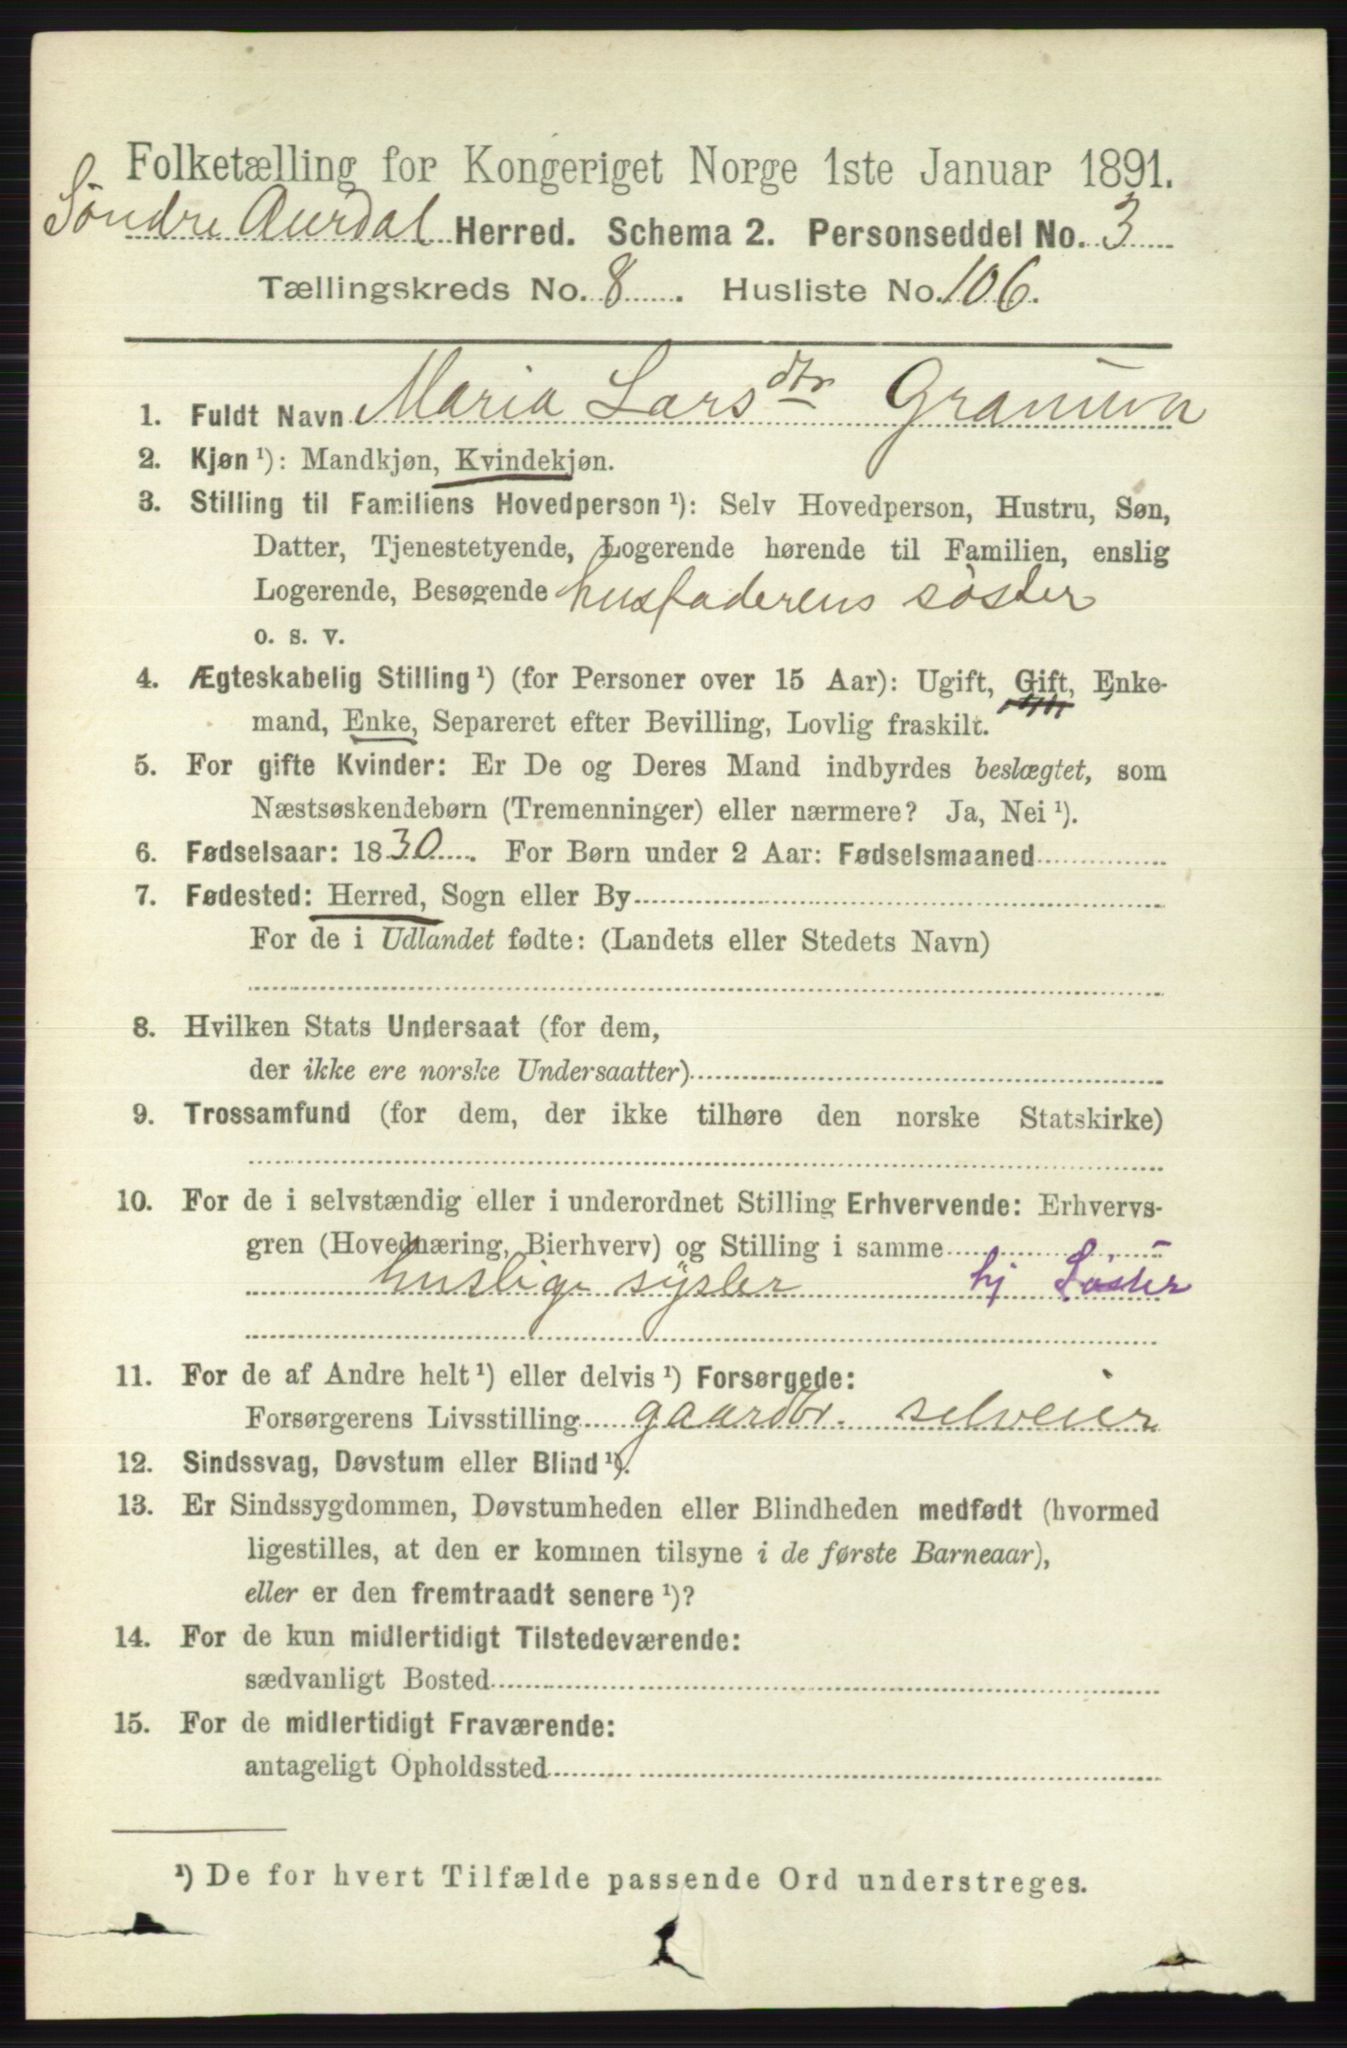 Folketælling for Kongeriget Norge 1ste Januar 1891.
Søndre Aurdal Herred. Schema 2. Personseddel No. 3
Tællingskreds No. 8. Husliste No. 106.
1. Fuldt Navn Maria Larsdtr
2. Kjøn ¹): Mandkjøn, Kvindekjøn.
3. Stilling til Familiens Hovedperson ¹): Selv Hovedperson, Hustru, Søn,
Datter, Tjenestetyende, Logerende hørende til Familien, enslig
Logerende, Besøgende husfaderens søster
o. s. v.
4. Ægteskabelig Stilling ¹) (for Personer over 15 Aar): Ugift, Gift, Enke-
mand, Enke, Separeret efter Bevilling, Lovlig fraskilt.
5. For gifte Kvinder: Er De og Deres Mand indbyrdes beslægtet, som
Næstsøskendebørn (Tremenninger) eller nærmere? Ja, Nei ¹).
6. Fødselsaar: 1830. For Børn under 2 Aar: Fødselsmaaned
7. Fødested: Herred, Sogn eller By
For de i Udlandet fødte: (Landets eller Stedets Navn)
8. Hvilken Stats Undersaat (for dem,
der ikke ere norske Undersaatter)
9. Trossamfund (for dem, der ikke tilhøre den norske Statskirke)
10. For de i selvstændig eller i underordnet Stilling Erhvervende: Erhvervs-
gren (Hovednæring, Bierhverv) og Stilling i samme
huslige sysler hj Søster
11. For de af Andre helt ¹) eller delvis ¹) Forsørgede:
Forsørgerens Livsstilling gaardbr. selveier
12. Sindssvag, Døvstum eller Blind ¹).
13. Er Sindssygdommen, Døvstumheden eller Blindheden medfødt (hvormed
ligestilles, at den er kommen tilsyne i de første Barneaar),
eller er den fremtraadt senere ¹)?
14. For de kun midlertidigt Tilstedeværende:
sædvanligt Bosted
15. For de midlertidigt Fraværende:
antageligt Opholdssted
¹) De for hvert Tilfælde passende Ord understreges.